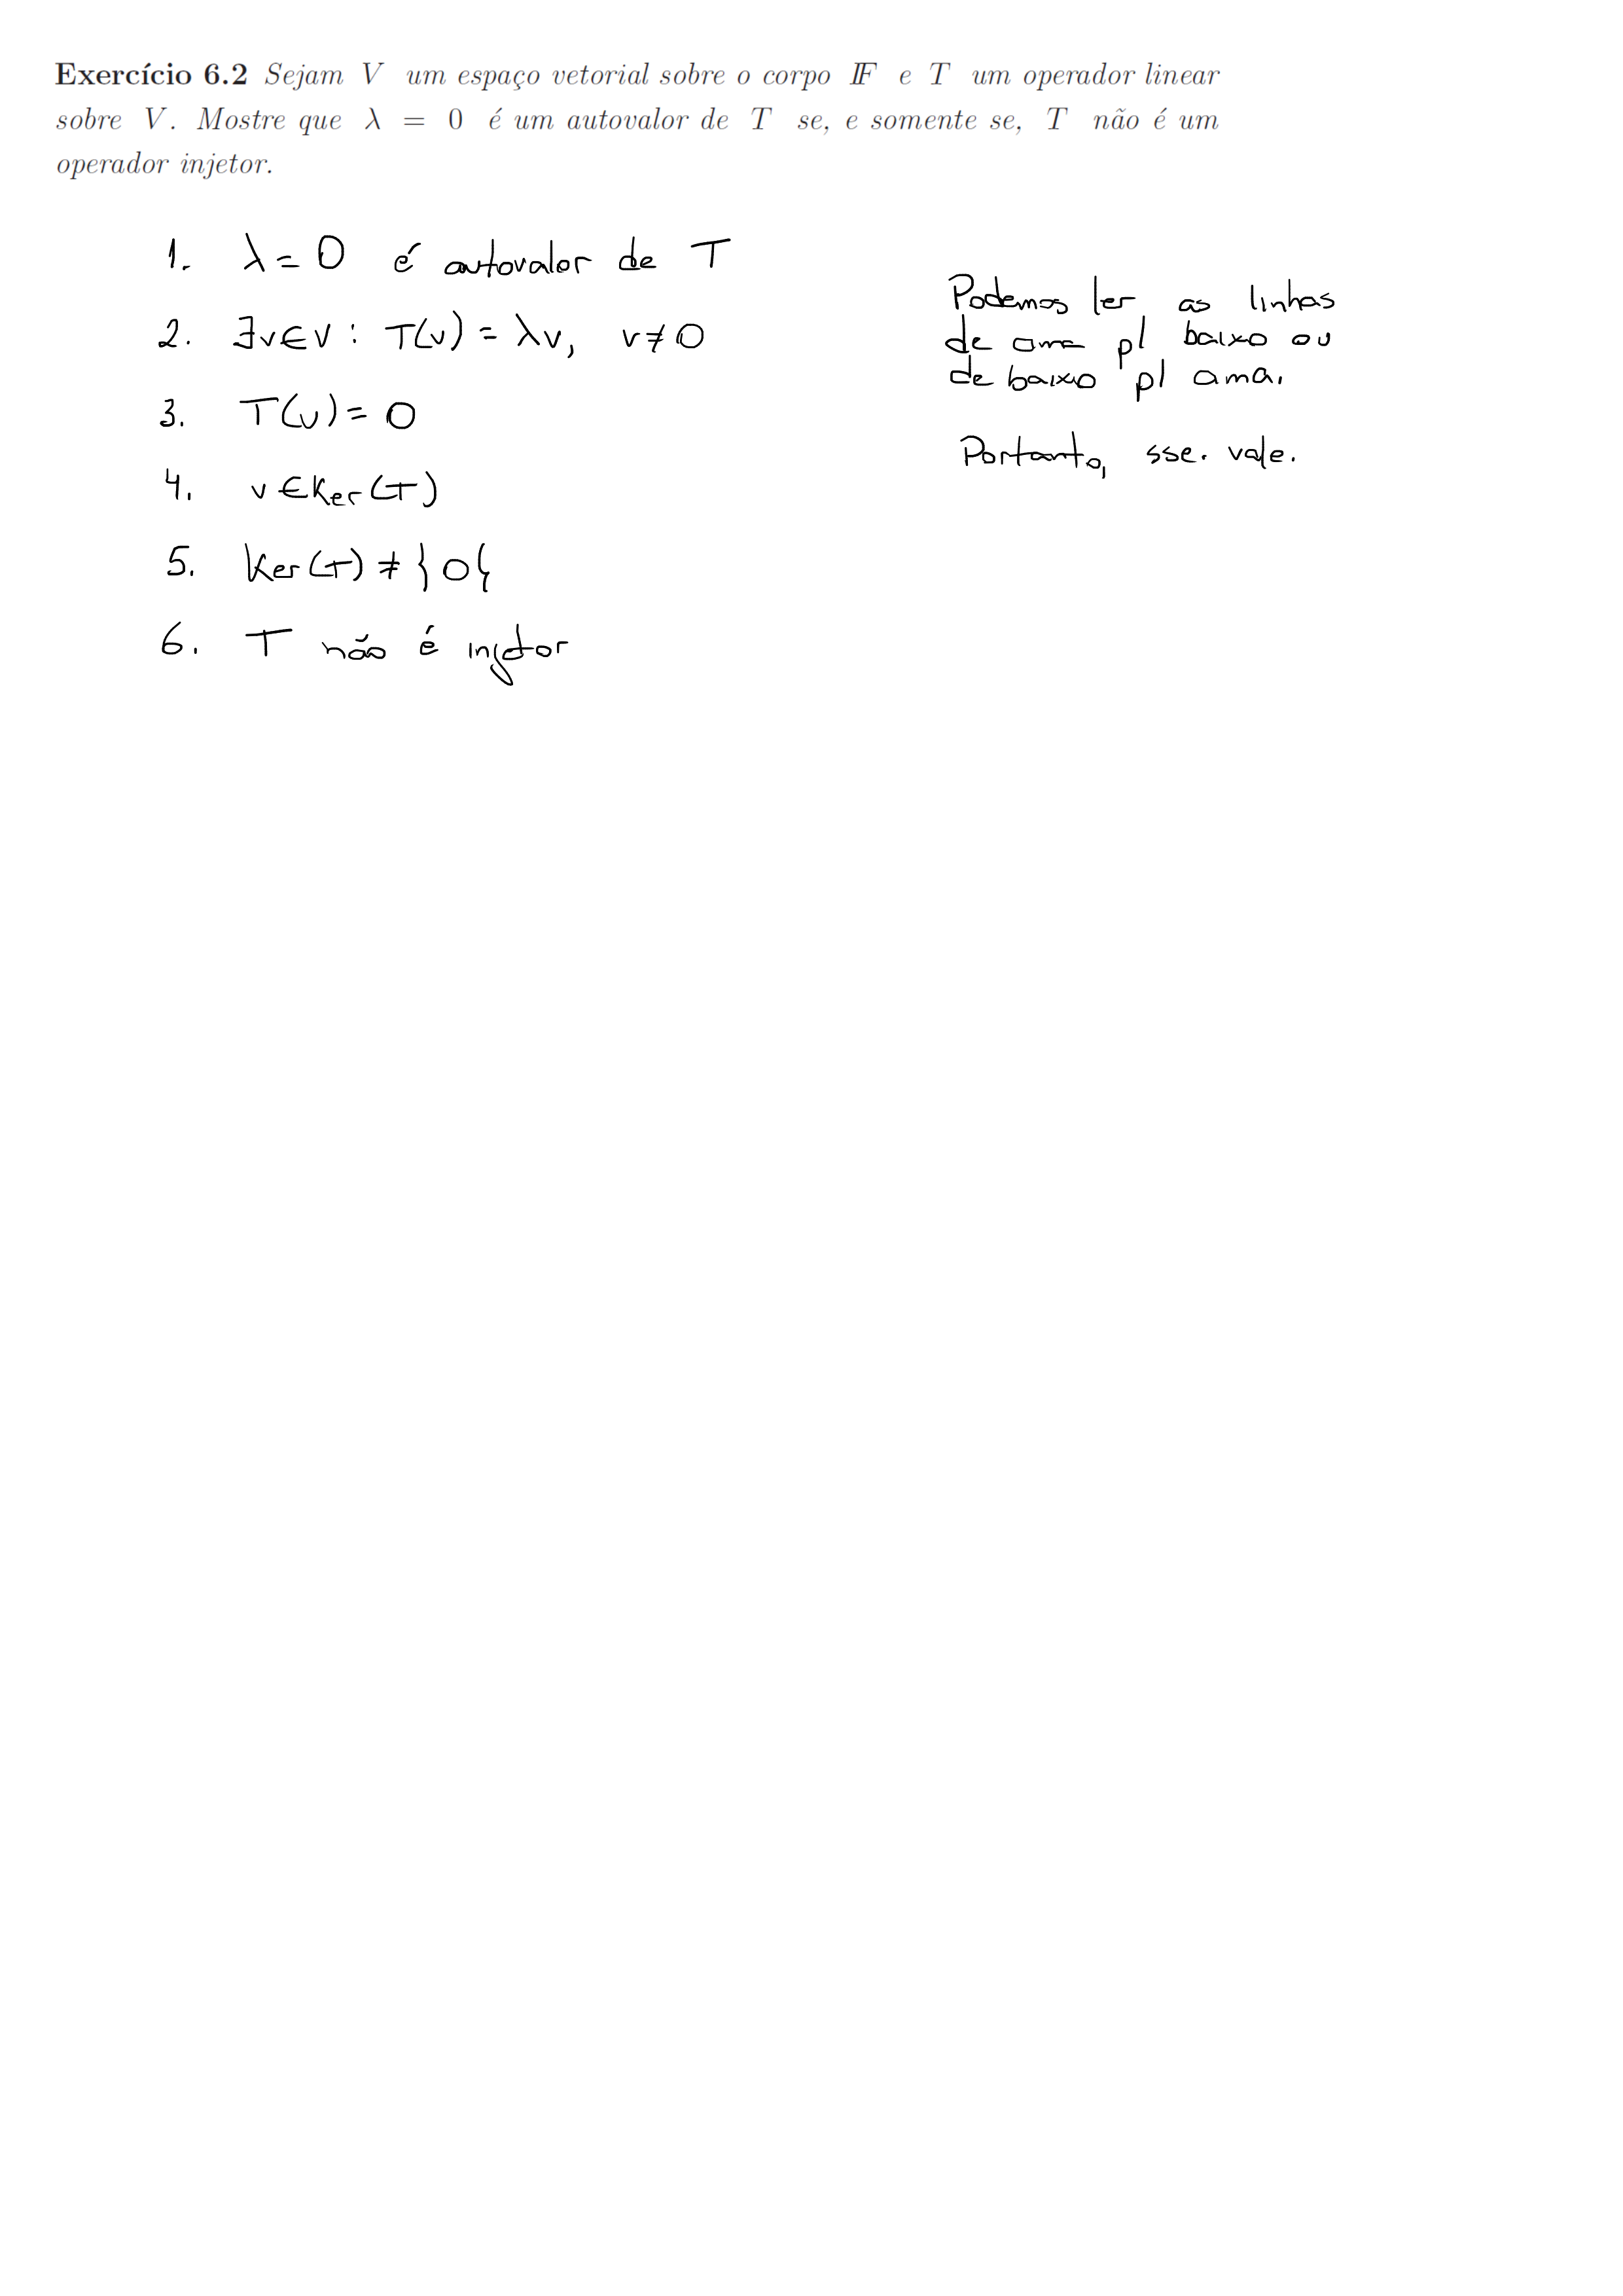 Exercício 6.2 Sejam V um espaço vetorial sobre o corpo IF e T um operador linear
sobre V. Mostre que λ = 0 é um autovalor de T se, e somente se, T não é um
operador injetor.
1. λ = 0 é autovalor de T
2. ∃v∈V : T(v) = λv, v≠0
3. T(v) = 0
4. v∈Ker(T)
5. Ker(T) ≠ }0{
6. T não é injetor
Podemos ler as linhas
de cima p/ baixo ou
de baixo p/ cima.
Portanto, sse. vale.